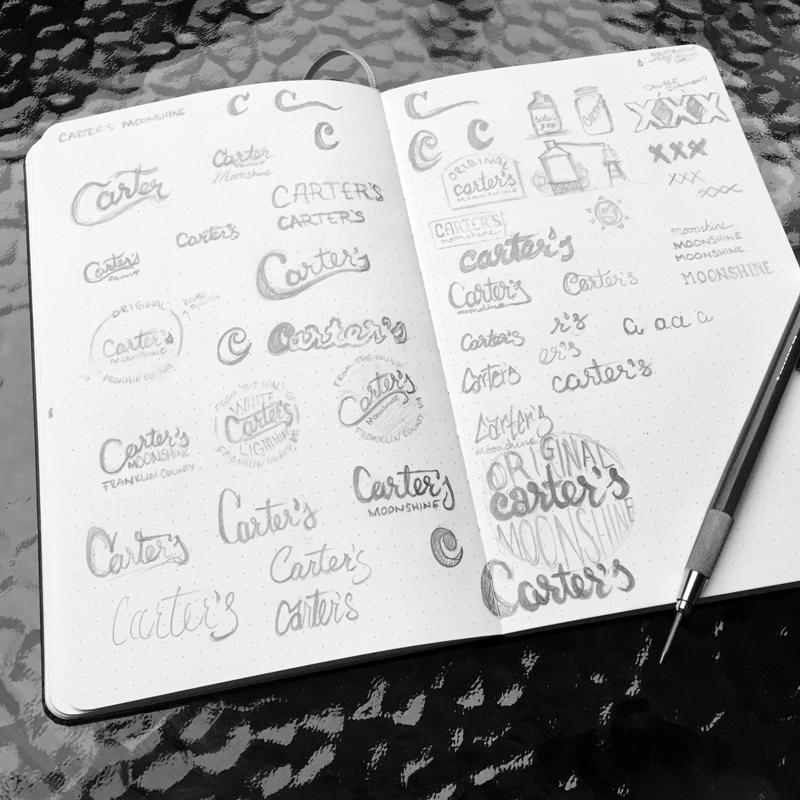 CARTER'S MOONSHINE
C C
C
Carter
Carter
Moonshine
CARTER'S
CARTER'S
Carter's
Carter's
Carter's
ORIGINAL
Carter's
MOONSHINE
FRANKLIN CO. VA.
C Carter's
FROM THE HILLS OF
WHITE
Carter's
LIGHTNING
FRANKLIN COUNTY
FROM THE HILLS OF
Carter's
Moonshine
FRANKLIN COUNTY
Carter's
MOONSHINE
FRANKLIN COUNTY
Carter's
MOONSHINE
Carter's
Carter's
C
Carter's
Carter's
Carter's
C
C C
Carter's
XXX
XXX
XXX
XXX
XXX
ORIGINAL
carter's
MOONSHINE
CARTER'S
moonshine
carter's
Carter's
moonshine
Carter's
moonshine
MOONSHINE
MOONSHINE
MOONSHINE
Carter's
r's
er's
a aa a
Carter's
carter's
Carter's
moonshine
ORIGINAL
carter's
MOONSHINE
Carter's